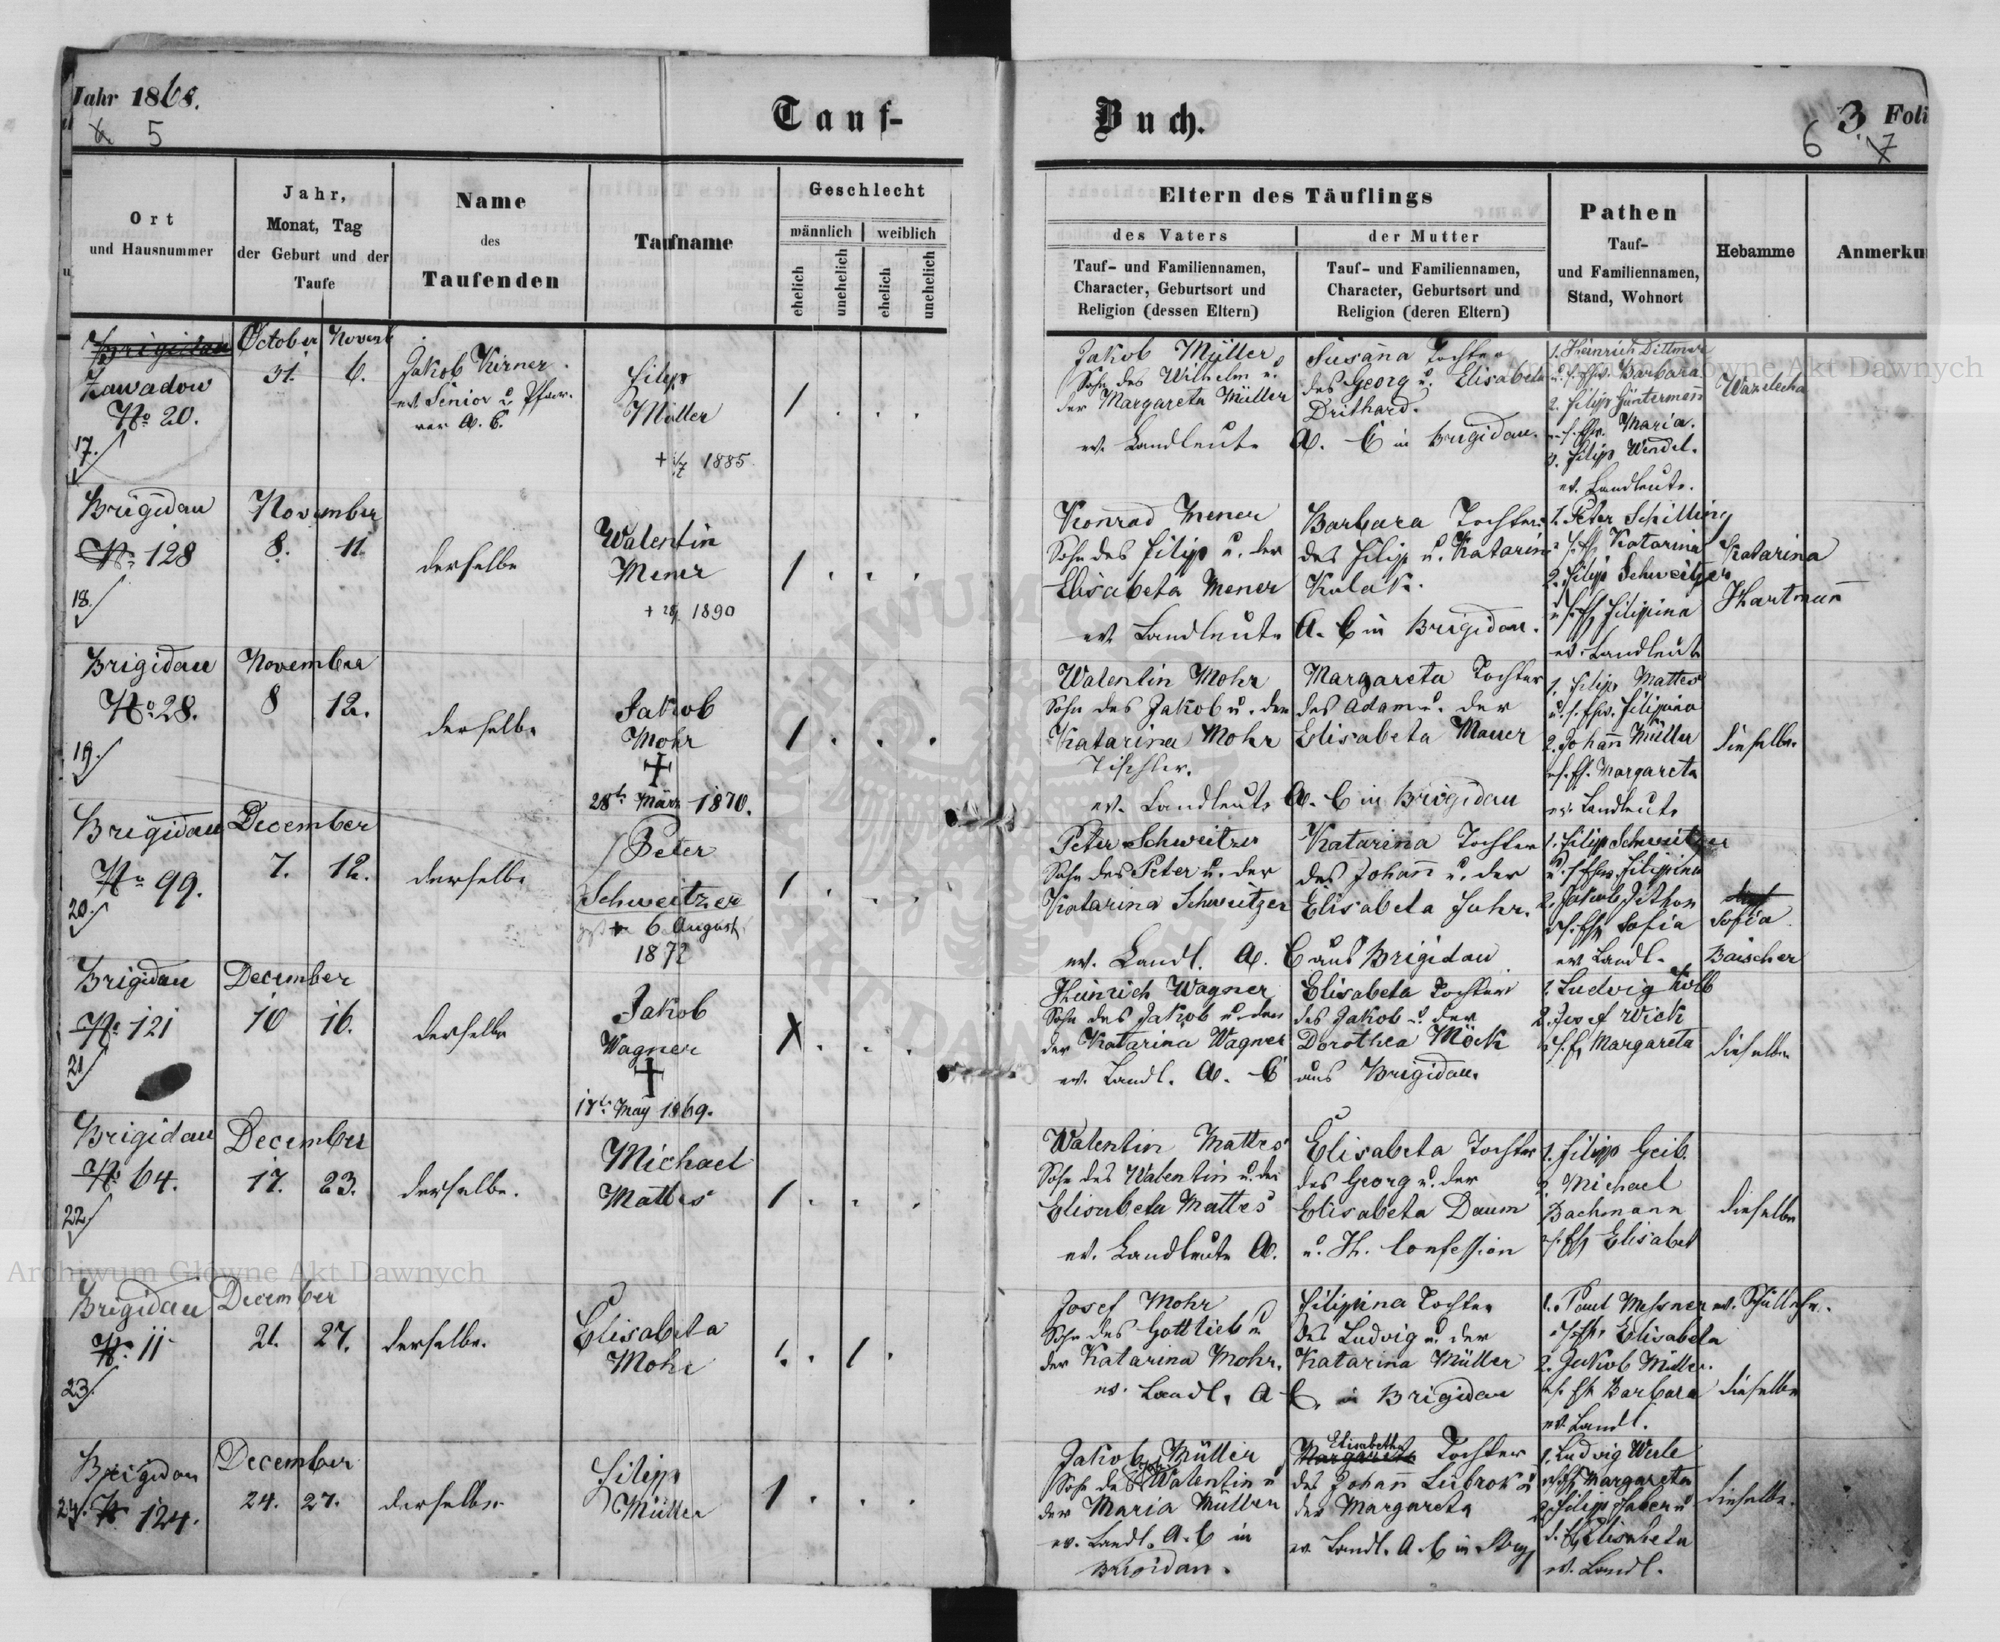 Jahr 1868.
5
Tauf-
Buch.
3. Foli
6 7
Ort
und Hausnummer
Jahr,
Monat, Tag
der Geburt und der
Taufe
Name
des
Taufenden
Taufname
Geschlecht
männlich
weiblich
ehelich
unehelich
ehelich
unehelich
Eltern des Täuflings
des Vaters
der Mutter
Tauf- und Familiennamen,
Character, Geburtsort und
Religion (dessen Eltern)
Tauf- und Familiennamen,
Character, Geburtsort und
Religion (deren Eltern)
Pathen
Tauf-
und Familiennamen,
Stand, Wohnort
Hebamme
Anmerku
Brigidau
Zawadow
No 20.
17.
October Novemb
31. 6.
Jakob Kerner
ev. Senior u. Pfar-
rer A. C.
Filip
Müller
+ 1885.
Jakob Müller
Sohn des Wilhelm u.
der Margareta Müller
ev. Landleute
Susana Tochter
des Georg u. Elisabeta
Drithard.
A. C in Brigidau.
1. Heinrich Dittmer
u. s. Ehw. Barbara
2. Filip Güntermann
u. s. Ehw. Maria.
3. Filip Wendel.
ev. Landleute.
Brigidau
No 128
18.
November
8. 11.
derselbe
Valentin
Mener
+ 1890
Konrad Mener
Sohn des Filip u. der
Elisabeta Mener
ev. Landleute
Barbara Tochter
des Filip u. Katarina
Kulak.
A. C in Brigidau.
1. Peter Schilling
Katarina
2. Filip Schweitzer
Filipina
ev. Landleute
Katarina
Hartmann
Brigidau
No 28.
19.
November
8 12.
derselbe
Jakob
Mohr
28t März 1870.
Valentin Mohr
Sohn des Jakob u. der
Katarina Mohr
Tischler.
ev. Landleute
Margareta Tochter
des Adam u. der
Elisabeta Mauer
A. C in Brigidau
1. Filip Mattes
u. s. Ehw. Filipina
2. Johann Müller
Margareta
ev. Landleute
dieselbe
Brigidau
No 99.
20.
December
7. 12.
derselbe
Peter
Schweitzer
6 August
1872
Peter Schweitzer
Sohn des Peter u. der
Katarina Schweitzer
ev. Landl. A.
Katarina Tochter
des Johann u. der
Elisabeta Juhr.
C aus Brigidau
1. Filip Schweitzer
u. s. Ehw. Filipina
2. Jakob
Sofia
ev. Landl.
Sofia
Baischer
Brigidau
No 121
21
December
10 16.
derselbe
Jakob
Wagner
17t May 1869.
Heinrich Wagner
Sohn des Jakob u. der
der Katarina Wagner
ev. Landl. A. C
Elisabeta Tochter
des Jakob u. der
Dorothea Möck
aus Brigidau.
1. Ludvig Kolb
2. Josef Wick
Margareta
dieselbe
Brigidau
No 64.
22
December
17. 23.
derselbe.
Michael
Mattes
Valentin Mattes
Sohn des Valentin u. der
Elisabeta Mattes
ev. Landleute A.
Elisabeta Tochter
des Georg u. der
Elisabeta Daum
u. H. Confession
1. Filipp Geib.
2. Michael
Bachmann
Elisabet
dieselbe
Brigidau
No 11
23.
December
21. 27.
derselbe.
Elisabeta
Mohr
Josef Mohr
Sohn des Gottlieb u
der Katarina Mohr.
ev. Landl. A
Filipina Tochter
des Ludvig u. der
Katarina Müller
C. in Brigidau
1. Paul Messner ev. Schullehr.
Elisabeta
2. Jakob Müller.
Barbara
ev. Landl.
dieselbe
Brigidau
24. No 124.
December
24. 27.
derselbe
Filipp
Müller
Jakob Müller
Sohn des Valentin u
der Maria Müller
ev. Landl. A. C in
Brigidau.
Elisabetha
Margareta Tochter
des Johann Lubrok u
der Margareta
ev. Landl. A C in
1. Ludvig Werle
Margareta
2. Filipp Faber u
Elisabeta
ev. Landl.
dieselbe.
Archiwum Główne Akt Dawnych
Archiwum Główne Akt Dawnych